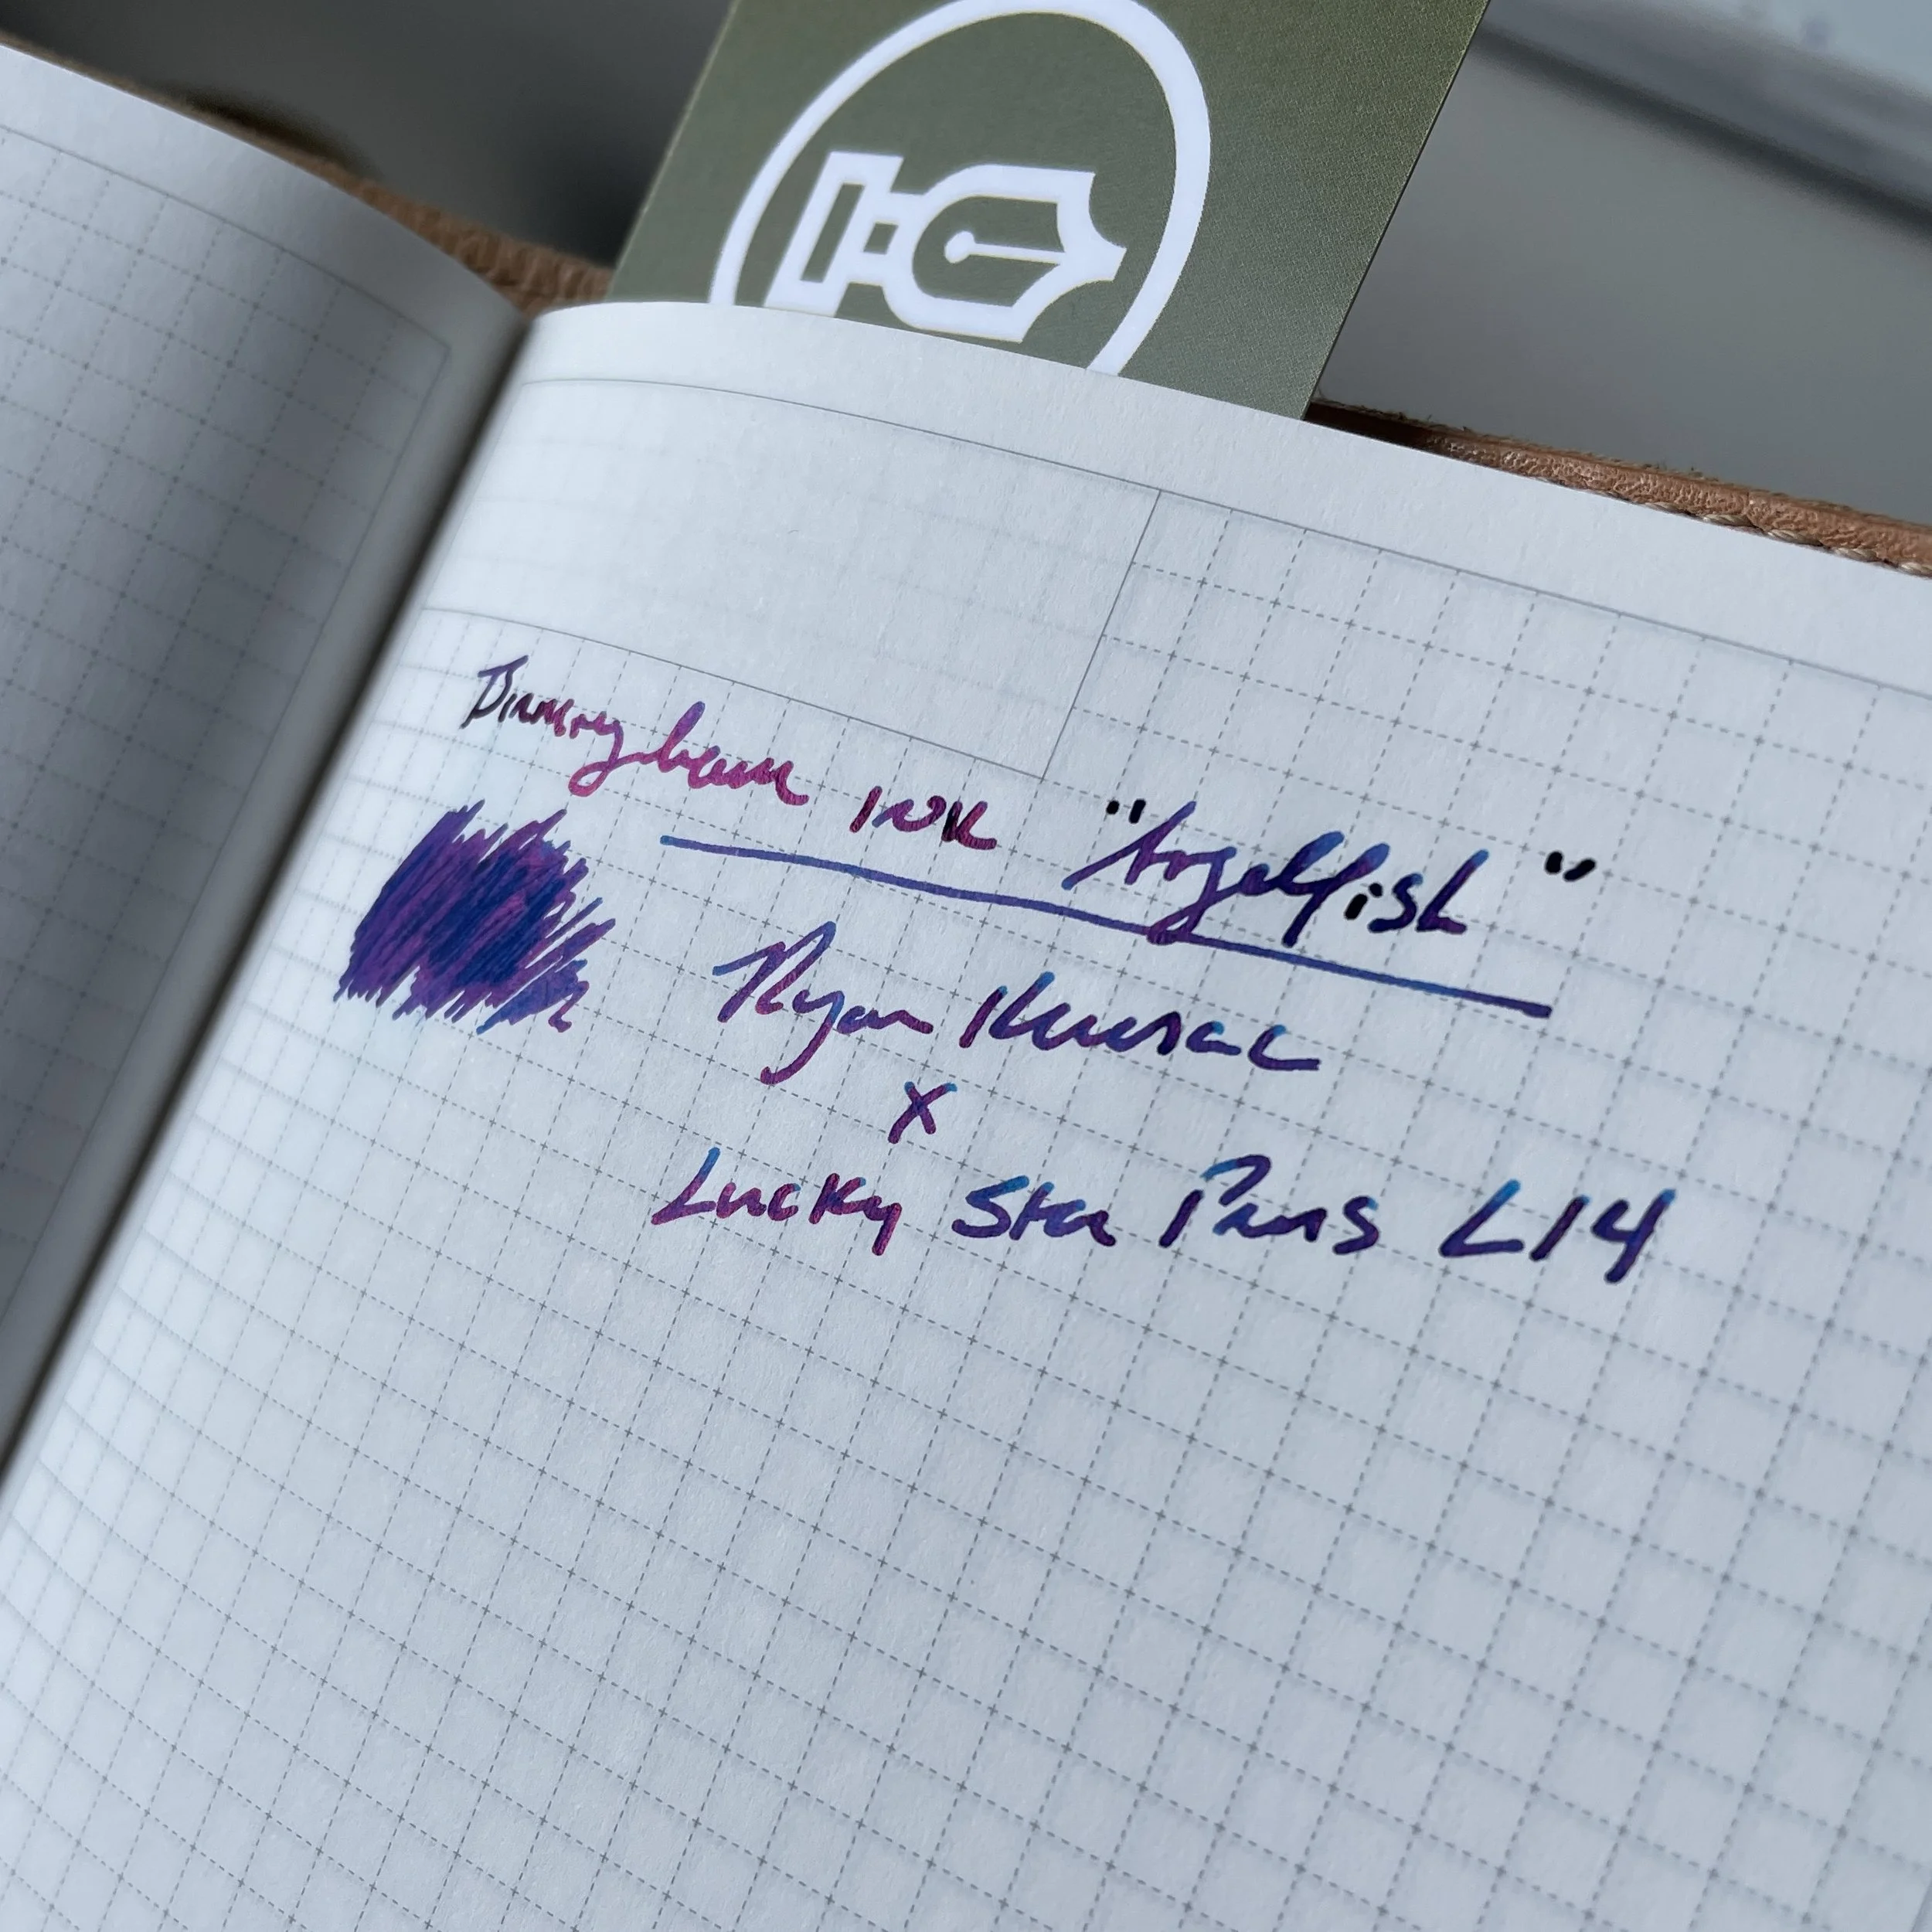 Birmingham INK "Angelfish"
Ryan Krusac
X
Lucky Star Pens L14